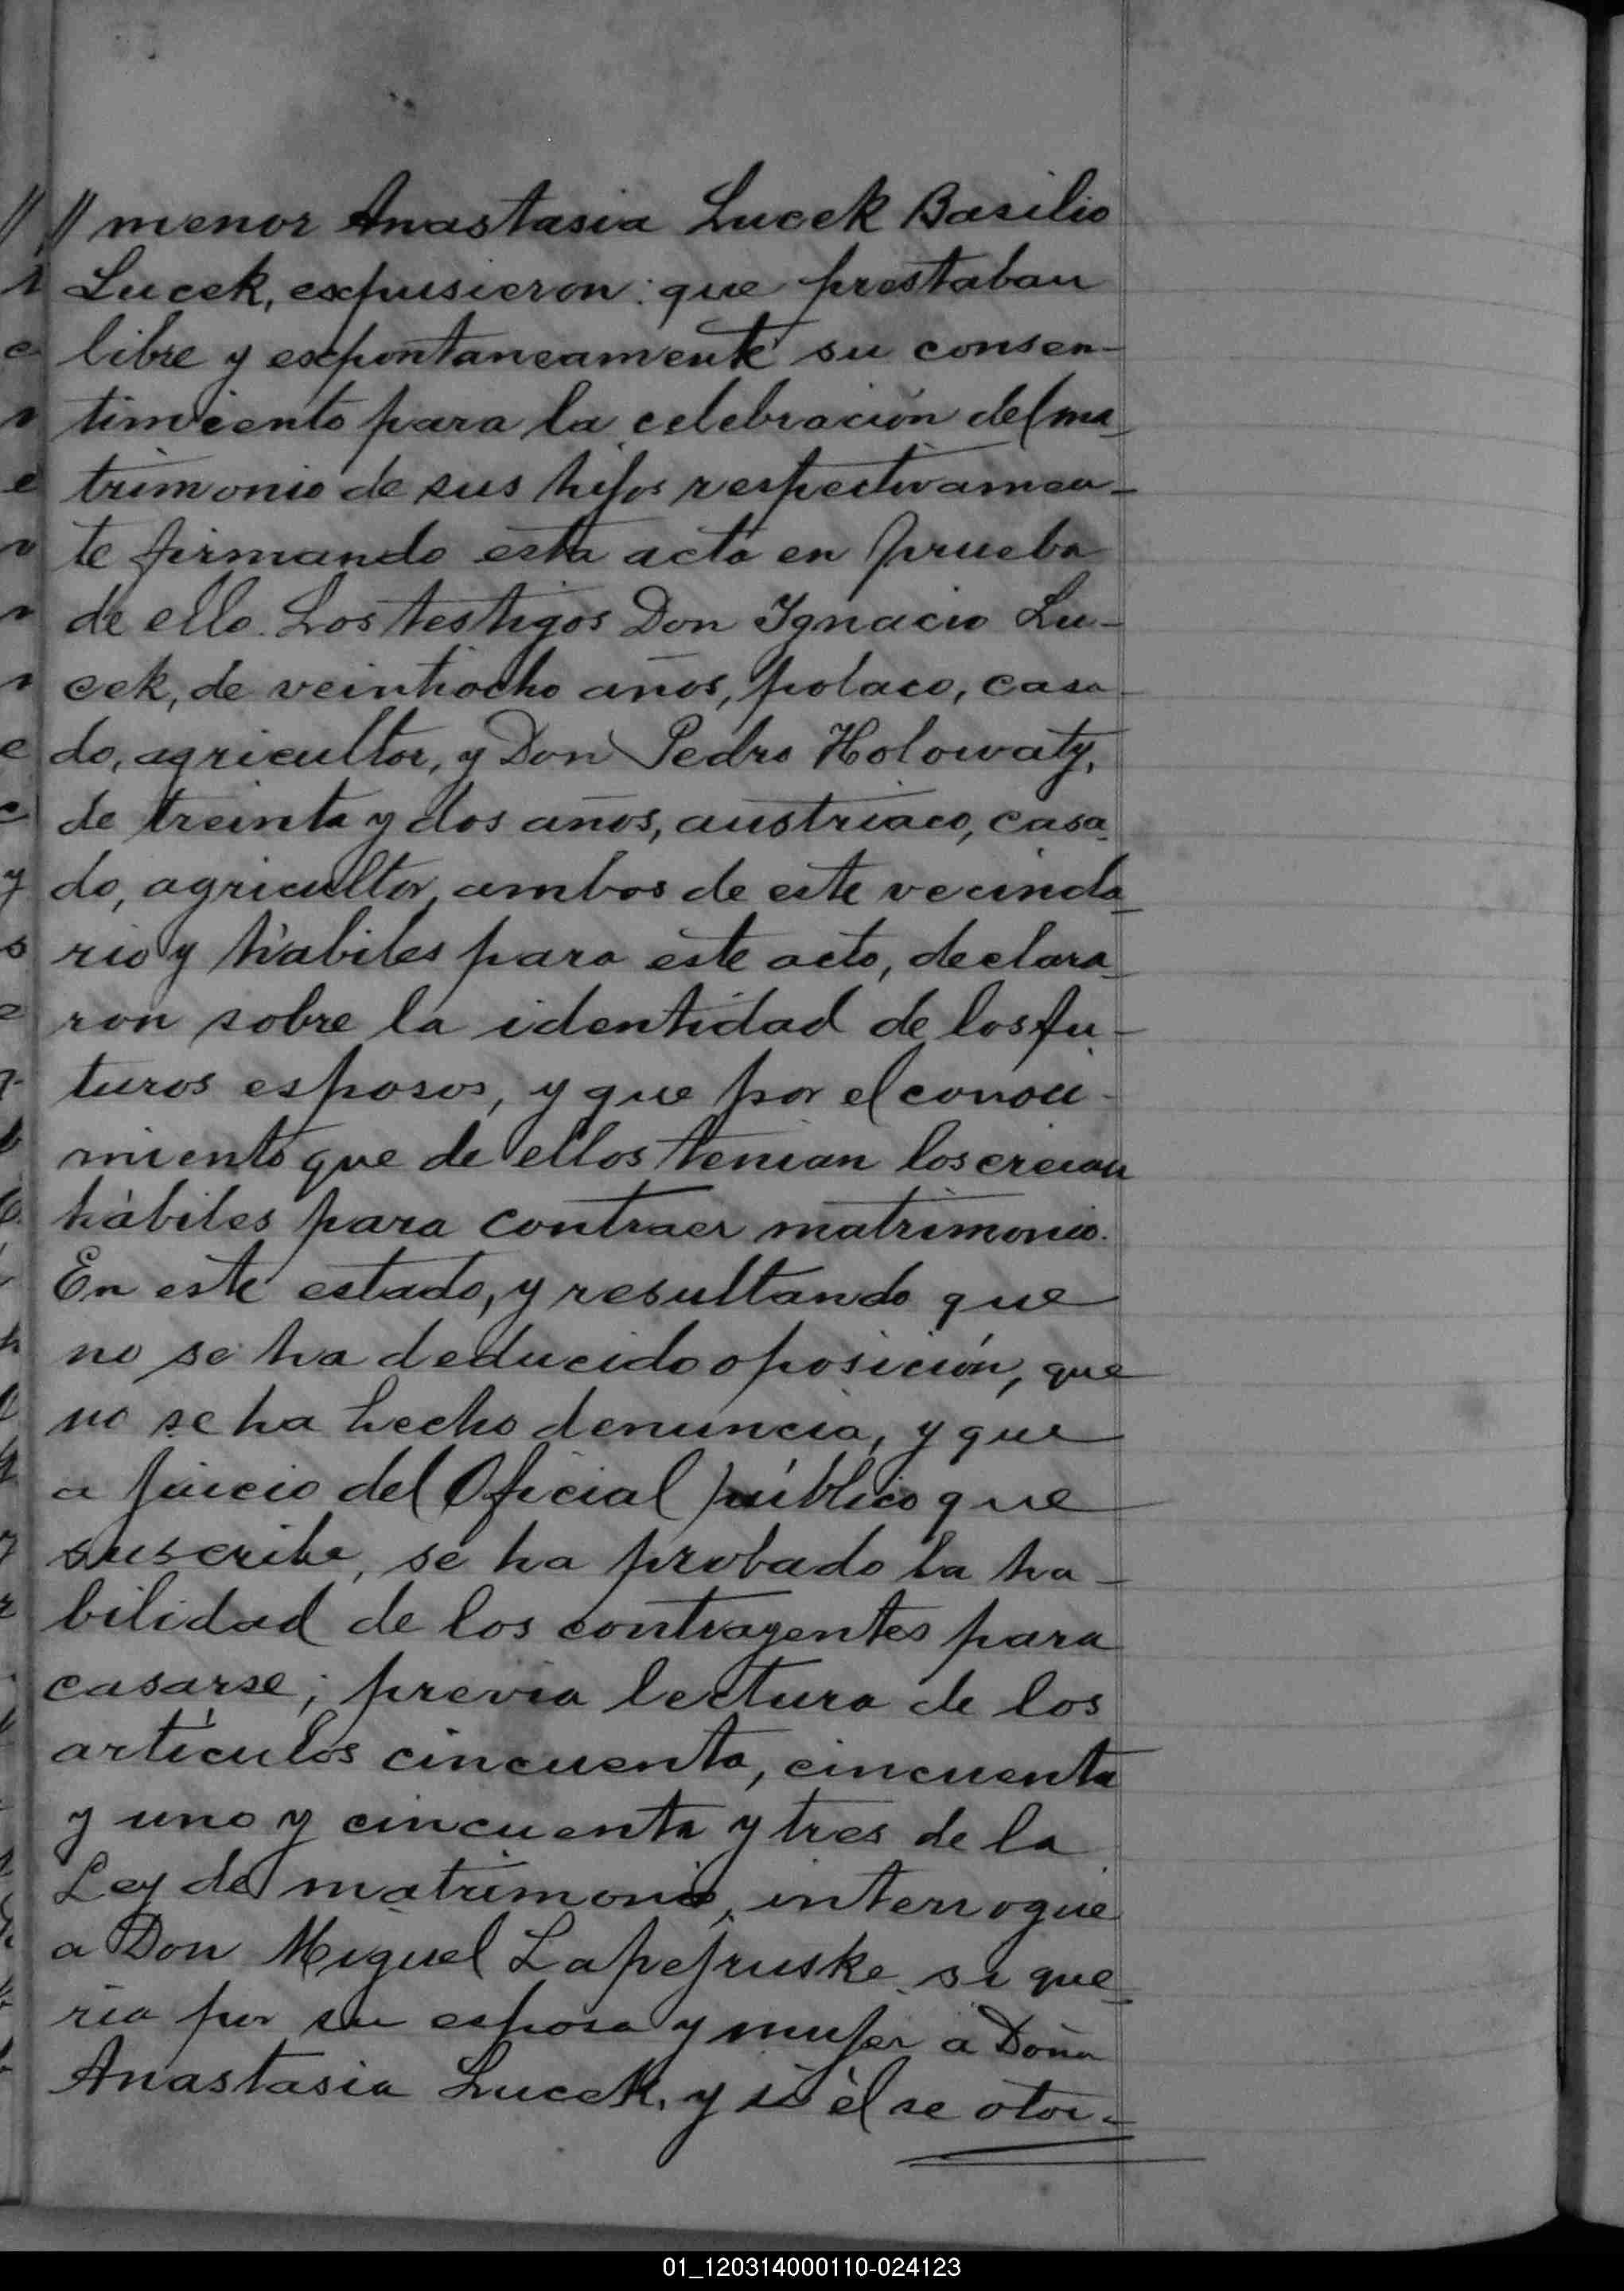 // menor Anastasia Lucek Basilio
Lucek, expusieron: que prestaban
libre y expontaneamente su consen-
timiento para la celebración del ma-
trimonio de sus hijos respectivamen-
te firmando esta acta en prueba
de ello. Los testigos Don Ignacio Lu-
cek, de veintiocho años, polaco, casa-
do, agricultor, y Don Pedro Holowaty,
de treinta y dos años, austriaco, casa-
do, agricultor, ambos de este vecinda-
rio y hábiles para este acto, declara-
ron sobre la identidad de los fu-
turos esposos, y que por el conoci-
miento que de ellos tenian los creian
hábiles para contraer matrimonio.
En este estado, y resultando que
no se ha deducido oposición, que
no se ha hecho denuncia, y que
a juicio del Oficial público que
suscribe, se ha probado la ha-
bilidad de los contrayentes para
casarse; previa lectura de los
artículos cincuenta, cincuenta
y uno y cincuenta y tres de la
Ley de matrimonio, interrogué
a Don Miguel Lapejruske si que-
ria por su esposa y mujer a Doña
Anastasia Lucek, y si él se otor-
01_120314000110-024123